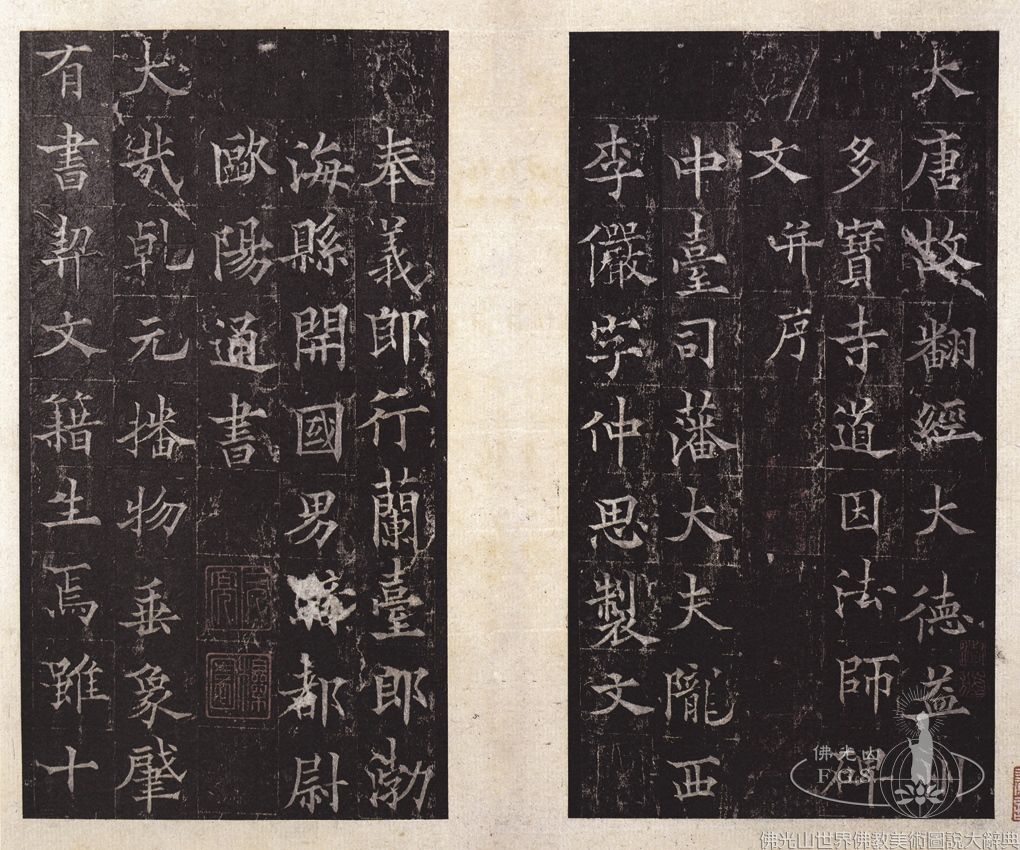 大唐故翻經大德益州
多寶寺道因法師碑
文并序
中臺司藩大夫隴西
李儼字仲思製文
奉義郎行蘭臺郎渤
海縣開國男都尉
歐陽通書
大哉乾元播物垂象肇
有書契文籍生焉雖十
佛光山
F.G.S.
佛光山世界佛教美術圖說大辭典